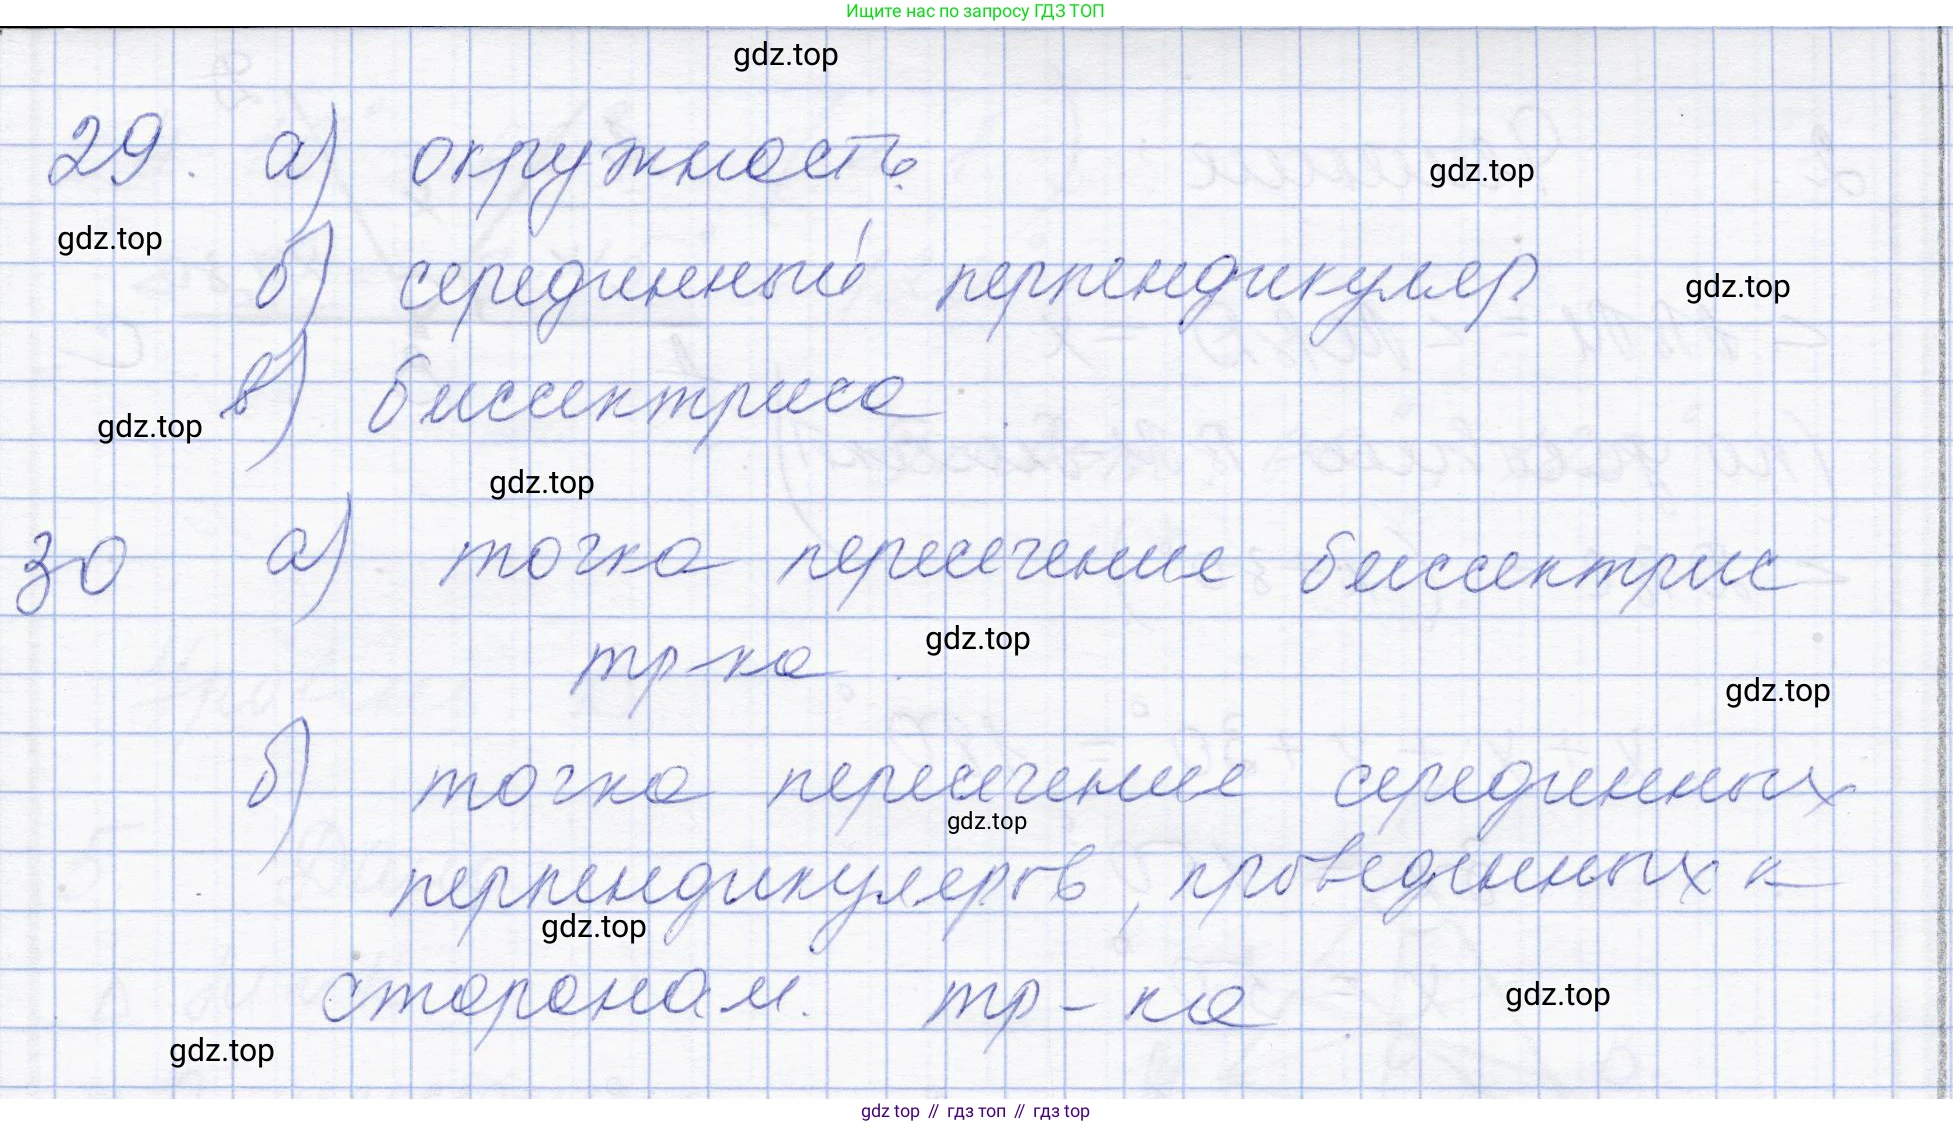 Ищите нас по запросу ГДЗ ТОП
gdz.top
29. а) окружность
gdz.top
gdz.top
б) серединный перпендикуляр
gdz.top
в) биссектриса
gdz.top
gdz.top
30 а) точка пересечение биссектрис
тр-ка
gdz.top
gdz.top
б) точка пересечение серединных
gdz.top
перпендикуляров, проведенных к
gdz.top
сторонам тр-ка
gdz.top
gdz.top
gdz top // гдз топ // гдз top